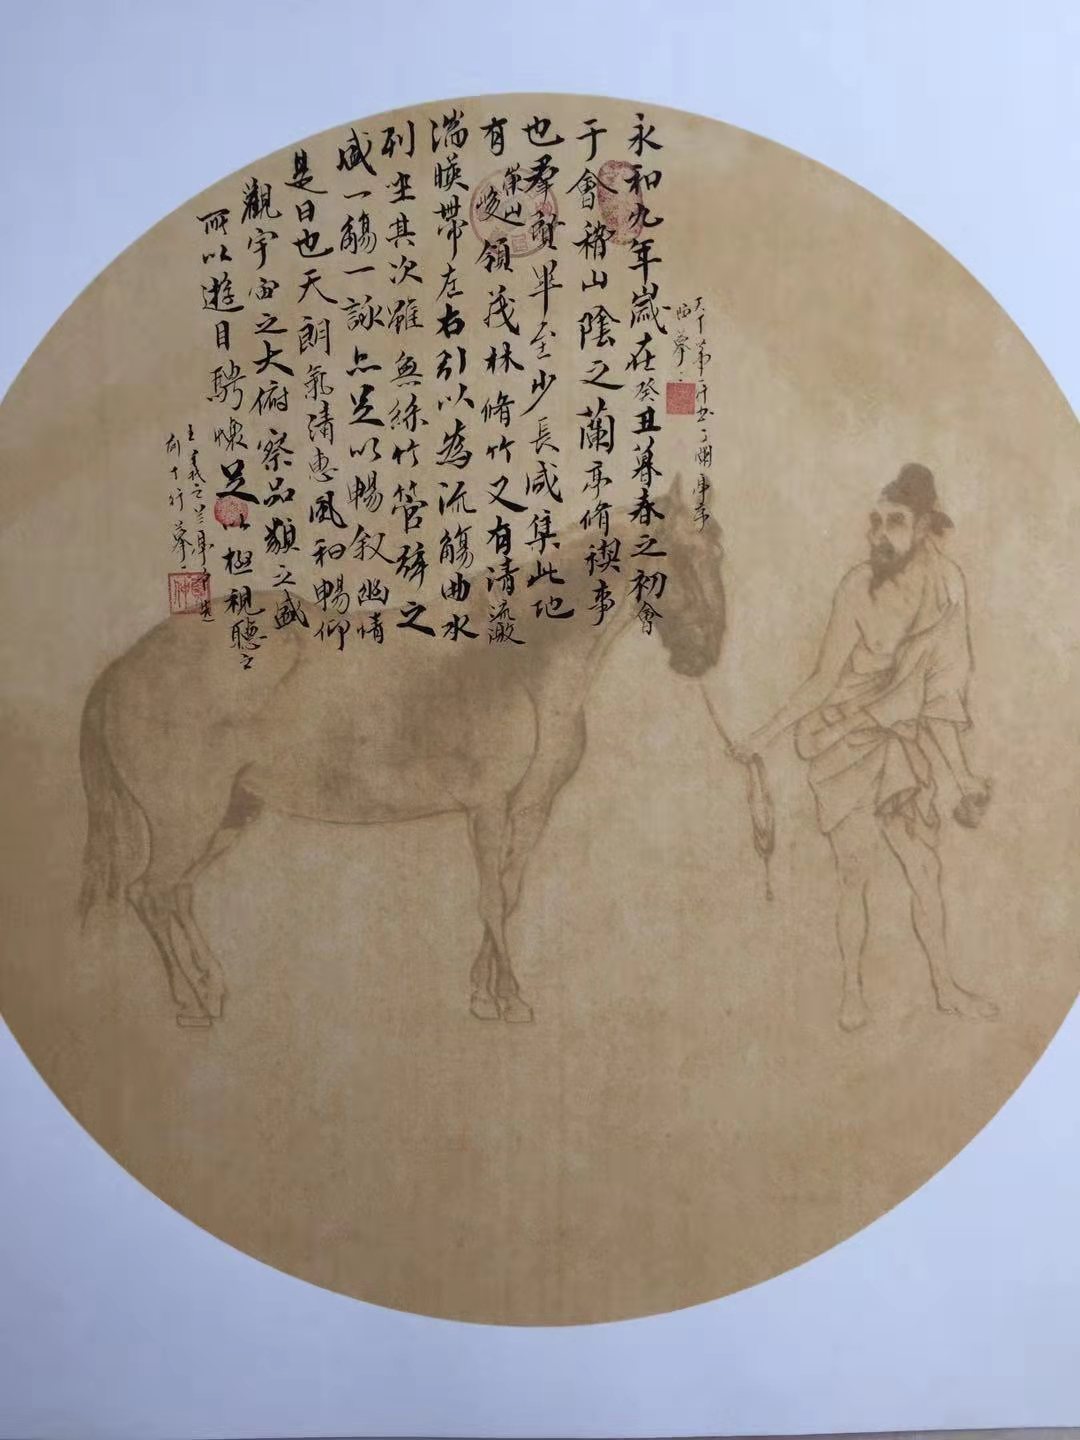 永和九年歲在癸丑暮春之初會
于會稽山陰之蘭亭脩禊事
也羣賢畢至少長咸集此地
有崇山峻領茂林脩竹又有清流激
湍暎帶左右引以為流觴曲水
列坐其次雖無絲竹管弦之
盛一觴一詠亦足以暢敘幽情
是日也天朗氣清惠風和暢仰
觀宇宙之大俯察品類之盛
所以遊目騁懷足以極視聽之
王羲之蘭亭序
前十行摹